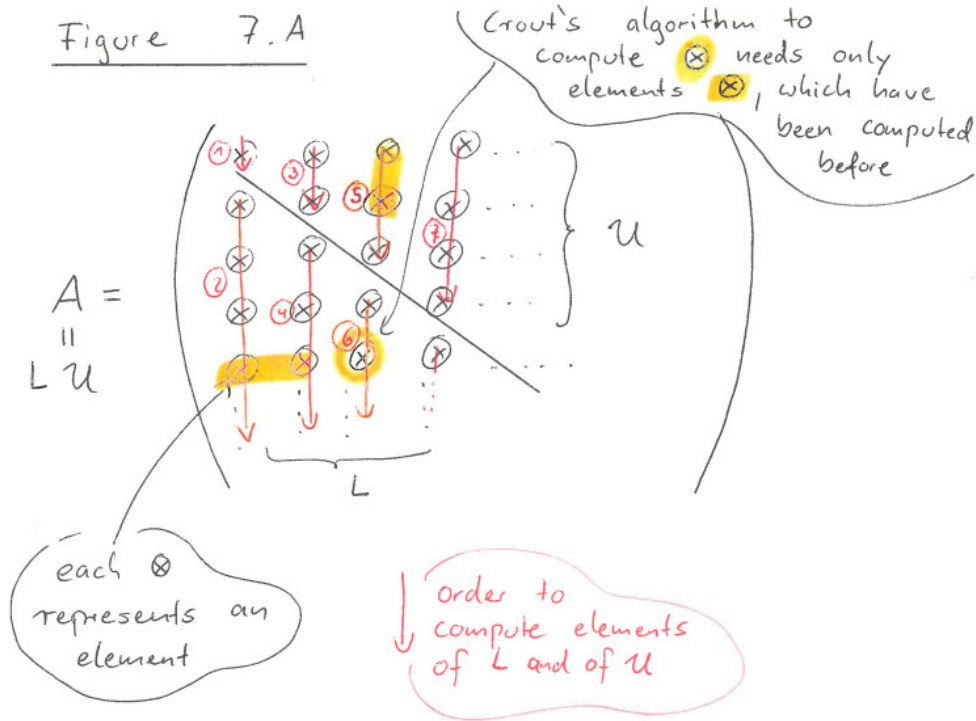 Figure 7.A
Crout's algorithm to
compute ⊗ needs only
elements ⊗, which have
been computed
before
1
3
5
7
2
4
6
U
A =
=
L U
L
each ⊗
represents an
element
order to
compute elements
of L and of U